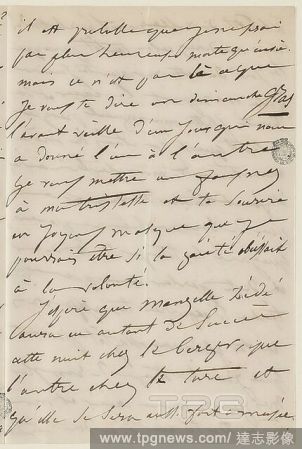 il est probable que je ne serai
pas plus heureuse morte que vivante
mais ce n'est pas là ce que
je veux te dire un dimanche gras
l'avant veille d'un jour qui nous
a donné l'un à l'autre
je veux mettre un faux nez
à ma tristesse et te sourire
en joyeux masque que je
pourrais être si la gaîté obéissait
à la volonté.
J'espère que Manzelle Dédé
aura eu autant de succès
cette nuit chez le berger, que
l'autre chez le turc et
qu'elle se sera aussi fort amusée
TPG
www.tpgnews.com/達志影像